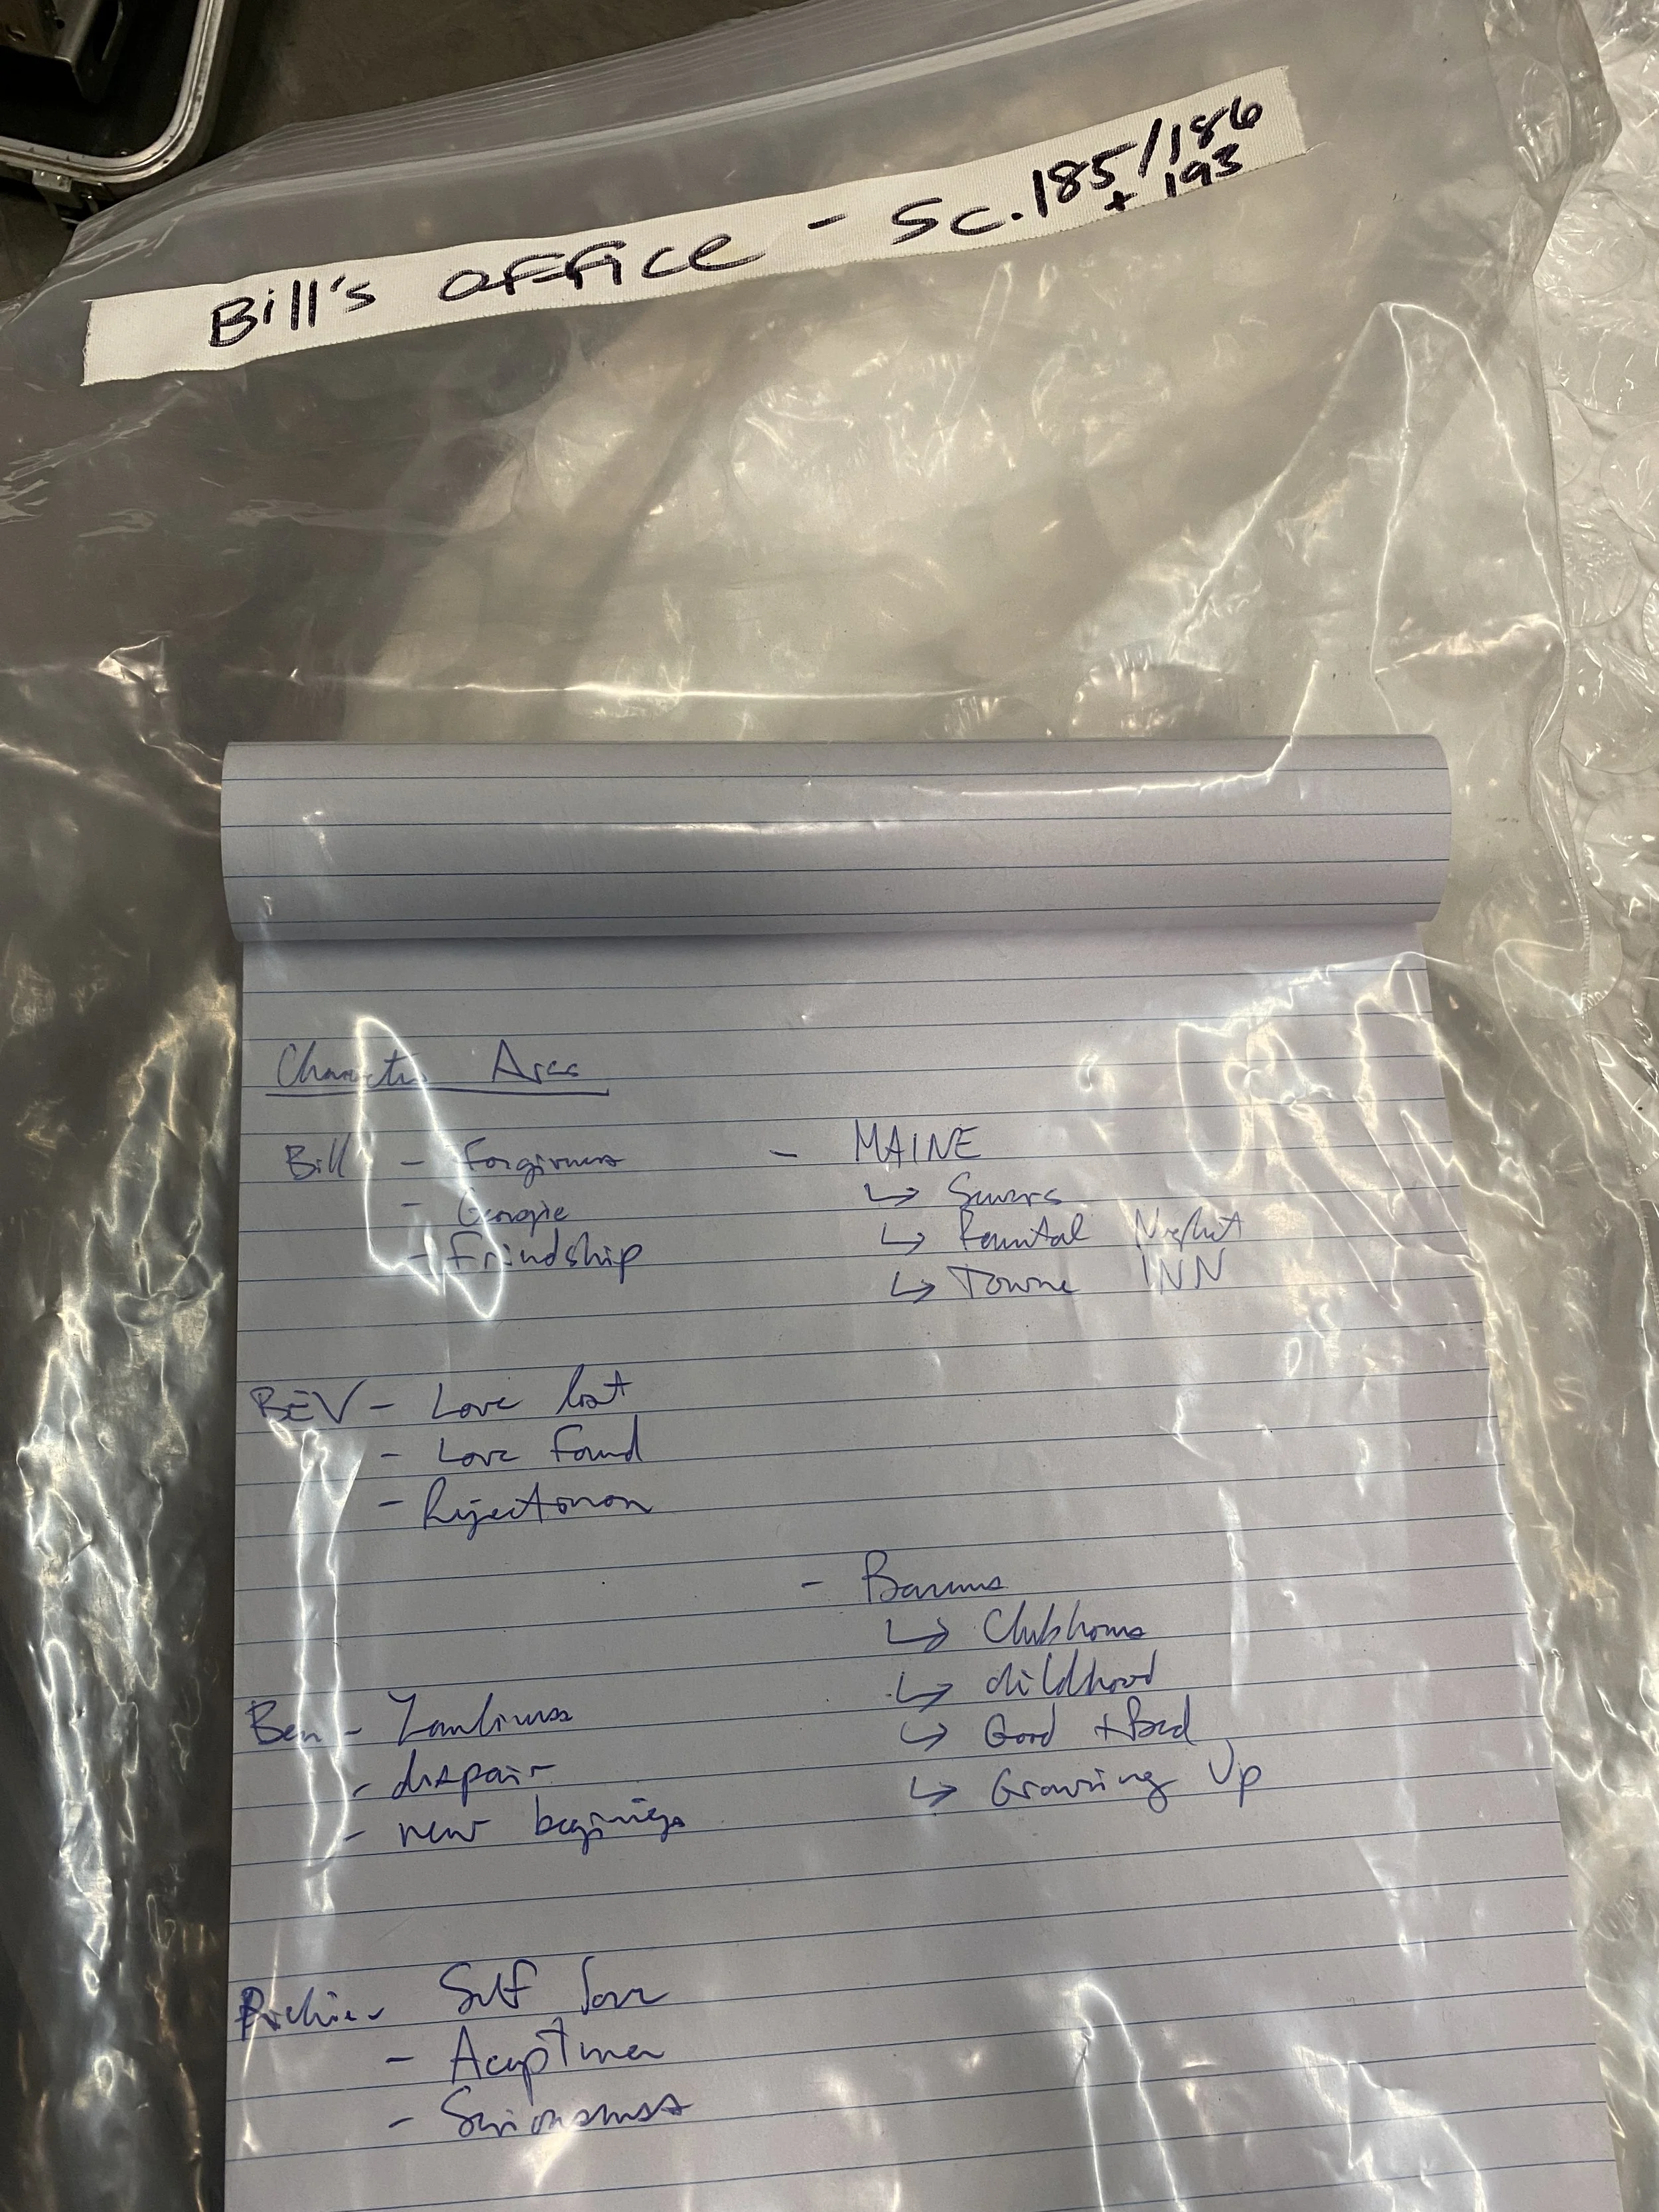 Bill's office - Sc. 185/186
+ 193
Character Arcs
Bill - Forgivness
- Georgie
- Frindship
- MAINE
↳ Sewers
↳ Night
↳ Towne INN
BEV - Love lost
- Love Found
- Rejection
- Barrens
↳ Clubhouse
↳ childhood
↳ Good + Bad
↳ Growing Up
Ben -
- dispair
- new beginings
Richie - Self love
- Acceptance
- Seriousness